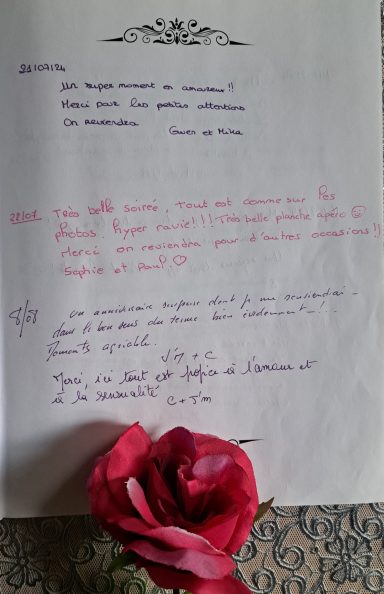 21/07/24
Un super moment en amoureux !!
Merci pour les petites attentions
On reviendra
Gwen et Mika
28/07. Très belle soirée, tout est comme sur les
photos. Hyper ravie !!! Très belle planche apéro ☺
Merci on reviendra pour d'autres occasions !!
Sophie et Paul ♡
8/08 un anniversaire surprise dont je me souviendrai -
dans le bon sens du terme bien évidemment - !..
Moments agréable.
J'M + C
Merci, ici tout est propice à l'amour et
à la sensualité
C + J'm